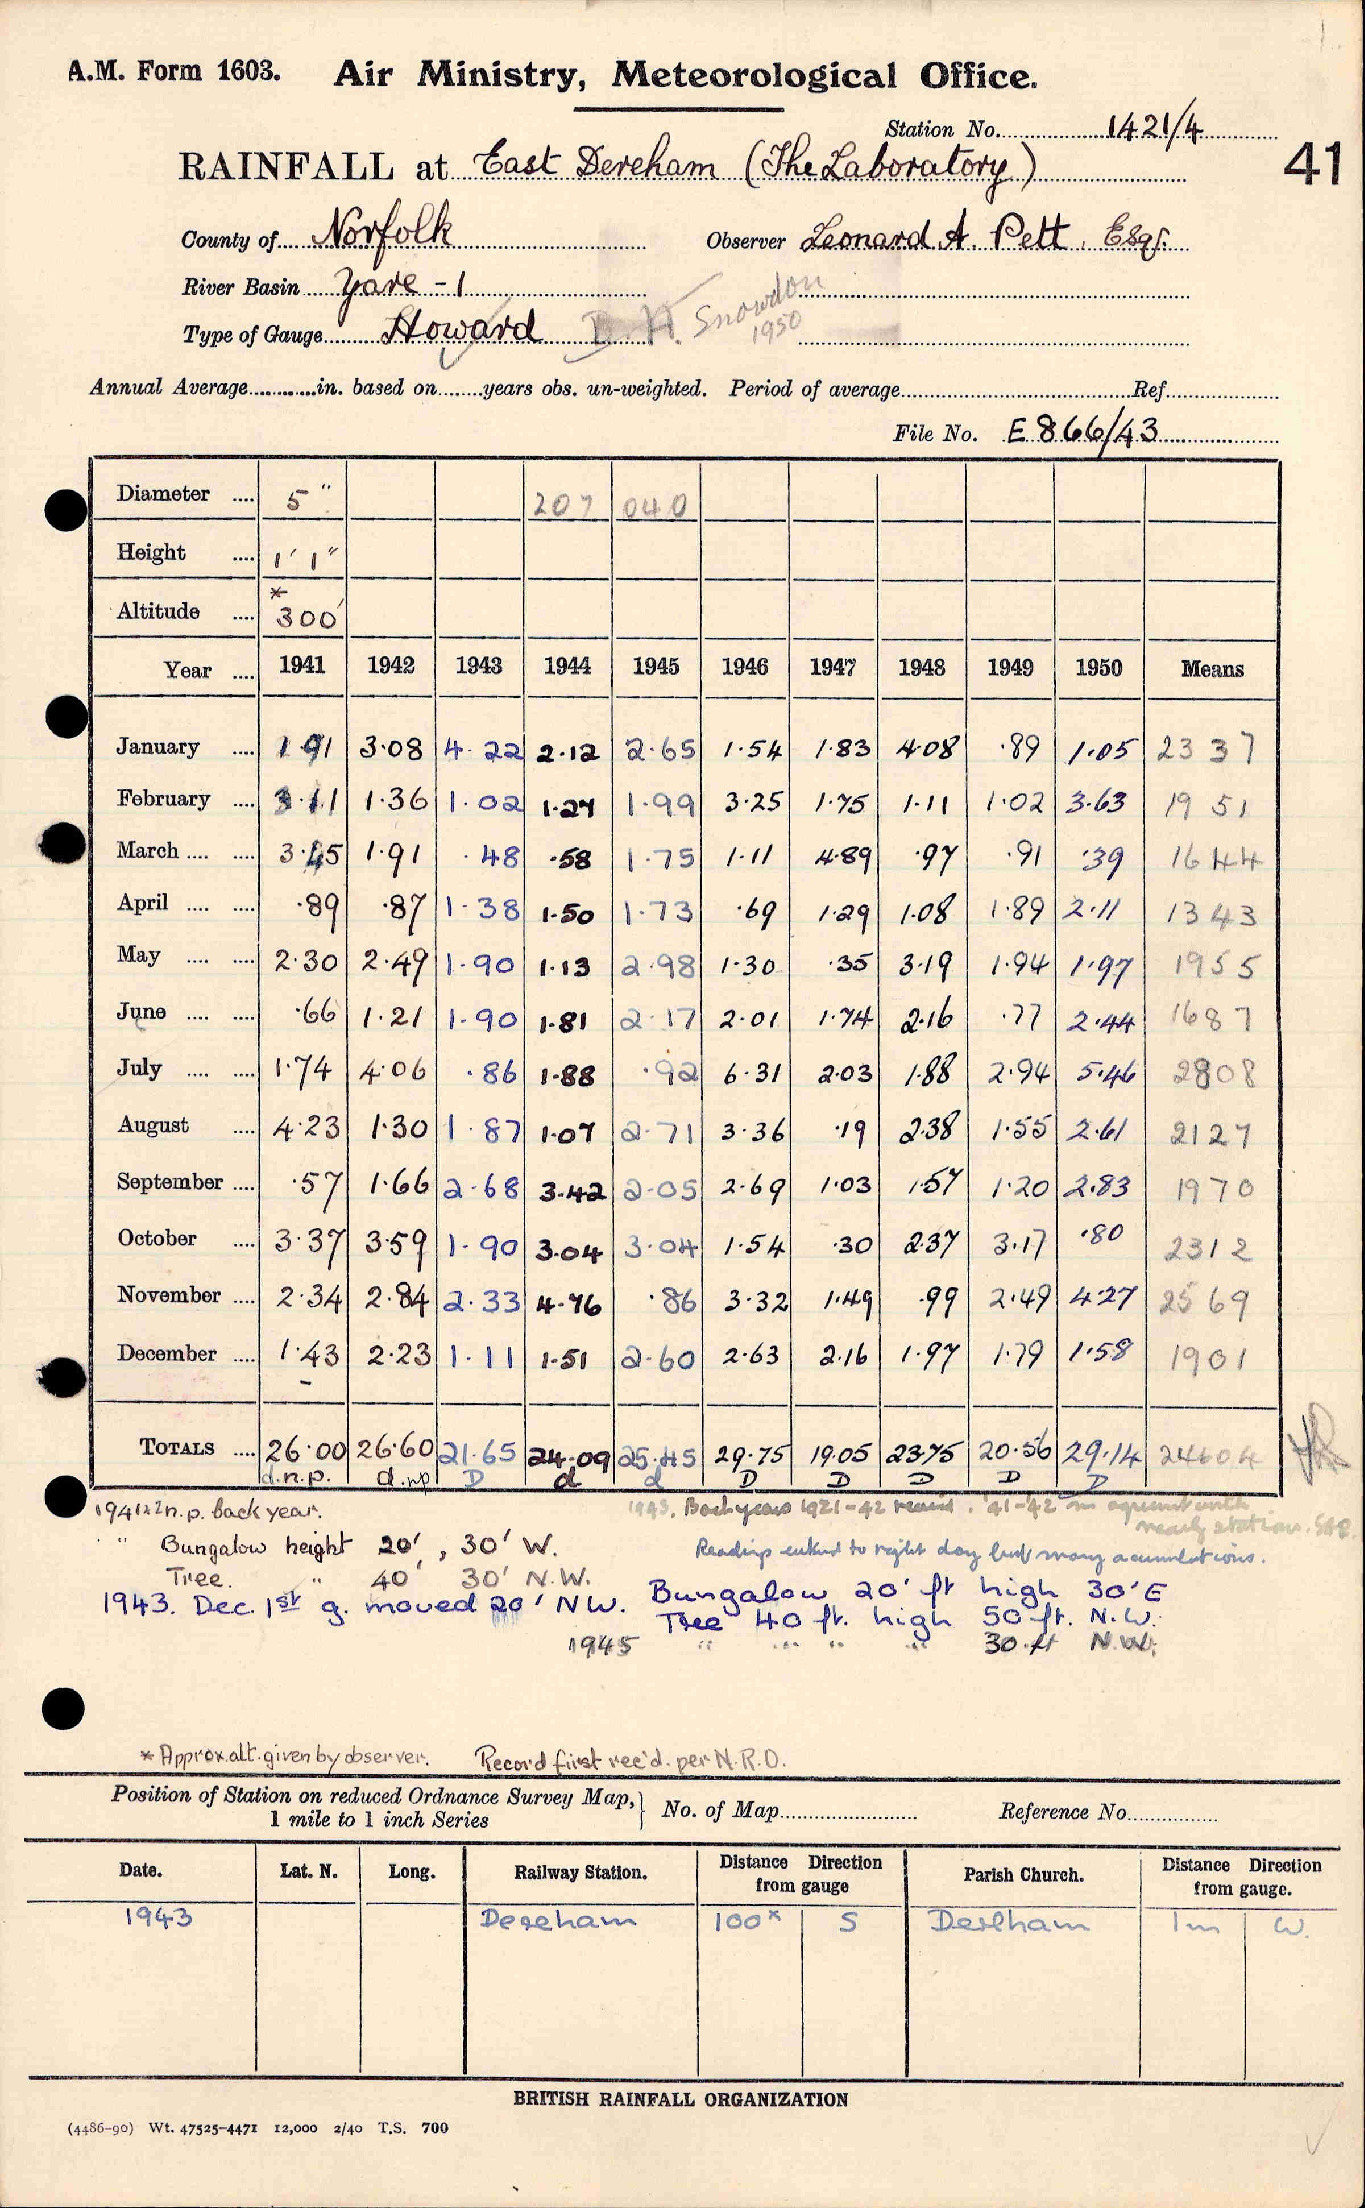 1.
A.M. Form 1603. Air Ministry, Meteorological Office.
Station No. 1421/4
41
RAINFALL at East Dereham (The Laboratory)
County of Norfolk Observer Leonard A. Pett, Esqr.
River Basin Yare - 1
Type of Gauge Howard D. H. Snowdon 1950
Annual Average............in. based on........years obs. un-weighted. Period of average........Ref........
File No. E 866/43
Diameter .... 5" 207 040
Height .... 1' 1"
Altitude .... * 300'
Year .... 1941 1942 1943 1944 1945 1946 1947 1948 1949 1950 Means
January .... 1 91 3·08 4·22 2·12 2·65 1·54 1·83 4·08 ·89 1·05 23 37
February .... 3·11 1·36 1·02 1·27 1·99 3·25 1·75 1·11 1·02 3·63 19 51
March .... .... 3·45 1·91 ·48 ·58 1·75 1·11 4·89 ·97 ·91 ·39 16 44
April .... .... ·89 ·87 1·38 1·50 1·73 ·69 1·29 1·08 1·89 2·11 13 43
May .... .... 2·30 2·49 1·90 1·13 2·98 1·30 ·35 3·19 1·94 1·97 19 5 5
June .... .... ·66 1·21 1·90 1·81 2·17 2·01 1·74 2·16 ·77 2·44 16 8 7
July .... .... 1·74 4·06 ·86 1·88 ·92 6·31 2·03 1·88 2·94 5·46 2808
August .... 4·23 1·30 1·87 1·07 2·71 3·36 ·19 2·38 1·55 2·61 2127
September .... ·57 1·66 2·68 3·42 2·05 2·69 1·03 1·57 1·20 2·83 1970
October .... 3·37 3·59 1·90 3·04 3·04 1·54 ·30 2·37 3·17 ·80 2312
November .... 2·34 2·84 2·33 4·76 ·86 3·32 1·49 ·99 2·49 4·27 25 69
December .... 1·43 2·23 1·11 1·51 2·60 2·63 2·16 1·97 1·79 1·58 1901
TOTALS .... 26·00 26·60 21·65 24·09 25·45 29·75 19·05 23·75 20·56 29·14 24604
d.n.p. d.np D d d D D D D D
n.p. back year. 1943. Back years 1921-42 rec'd. '41-'42 in agreement with
nearby station.
" Bungalow height 20', 30' W. Readings entered to right day but many accumulations.
Tree. " 40' 30' N.W.
1943. Dec. 1st g. moved 20' NW. Bungalow 20' ft high 30' E
Tree 40 ft. high 50 ft. N.W.
1945 " " " " 30 ft N.W.
* Approx. alt. given by observer. Record first rec'd. per N.R.O.
Position of Station on reduced Ordnance Survey Map, 1 mile to 1 inch Series } No. of Map........ Reference No........
Date. Lat. N. Long. Railway Station. Distance Direction from gauge Parish Church. Distance Direction from gauge.
1943 Dereham 100x S Dereham 1m W.
BRITISH RAINFALL ORGANIZATION
(4486-90) Wt. 47525-4471 12,000 2/40 T.S. 700